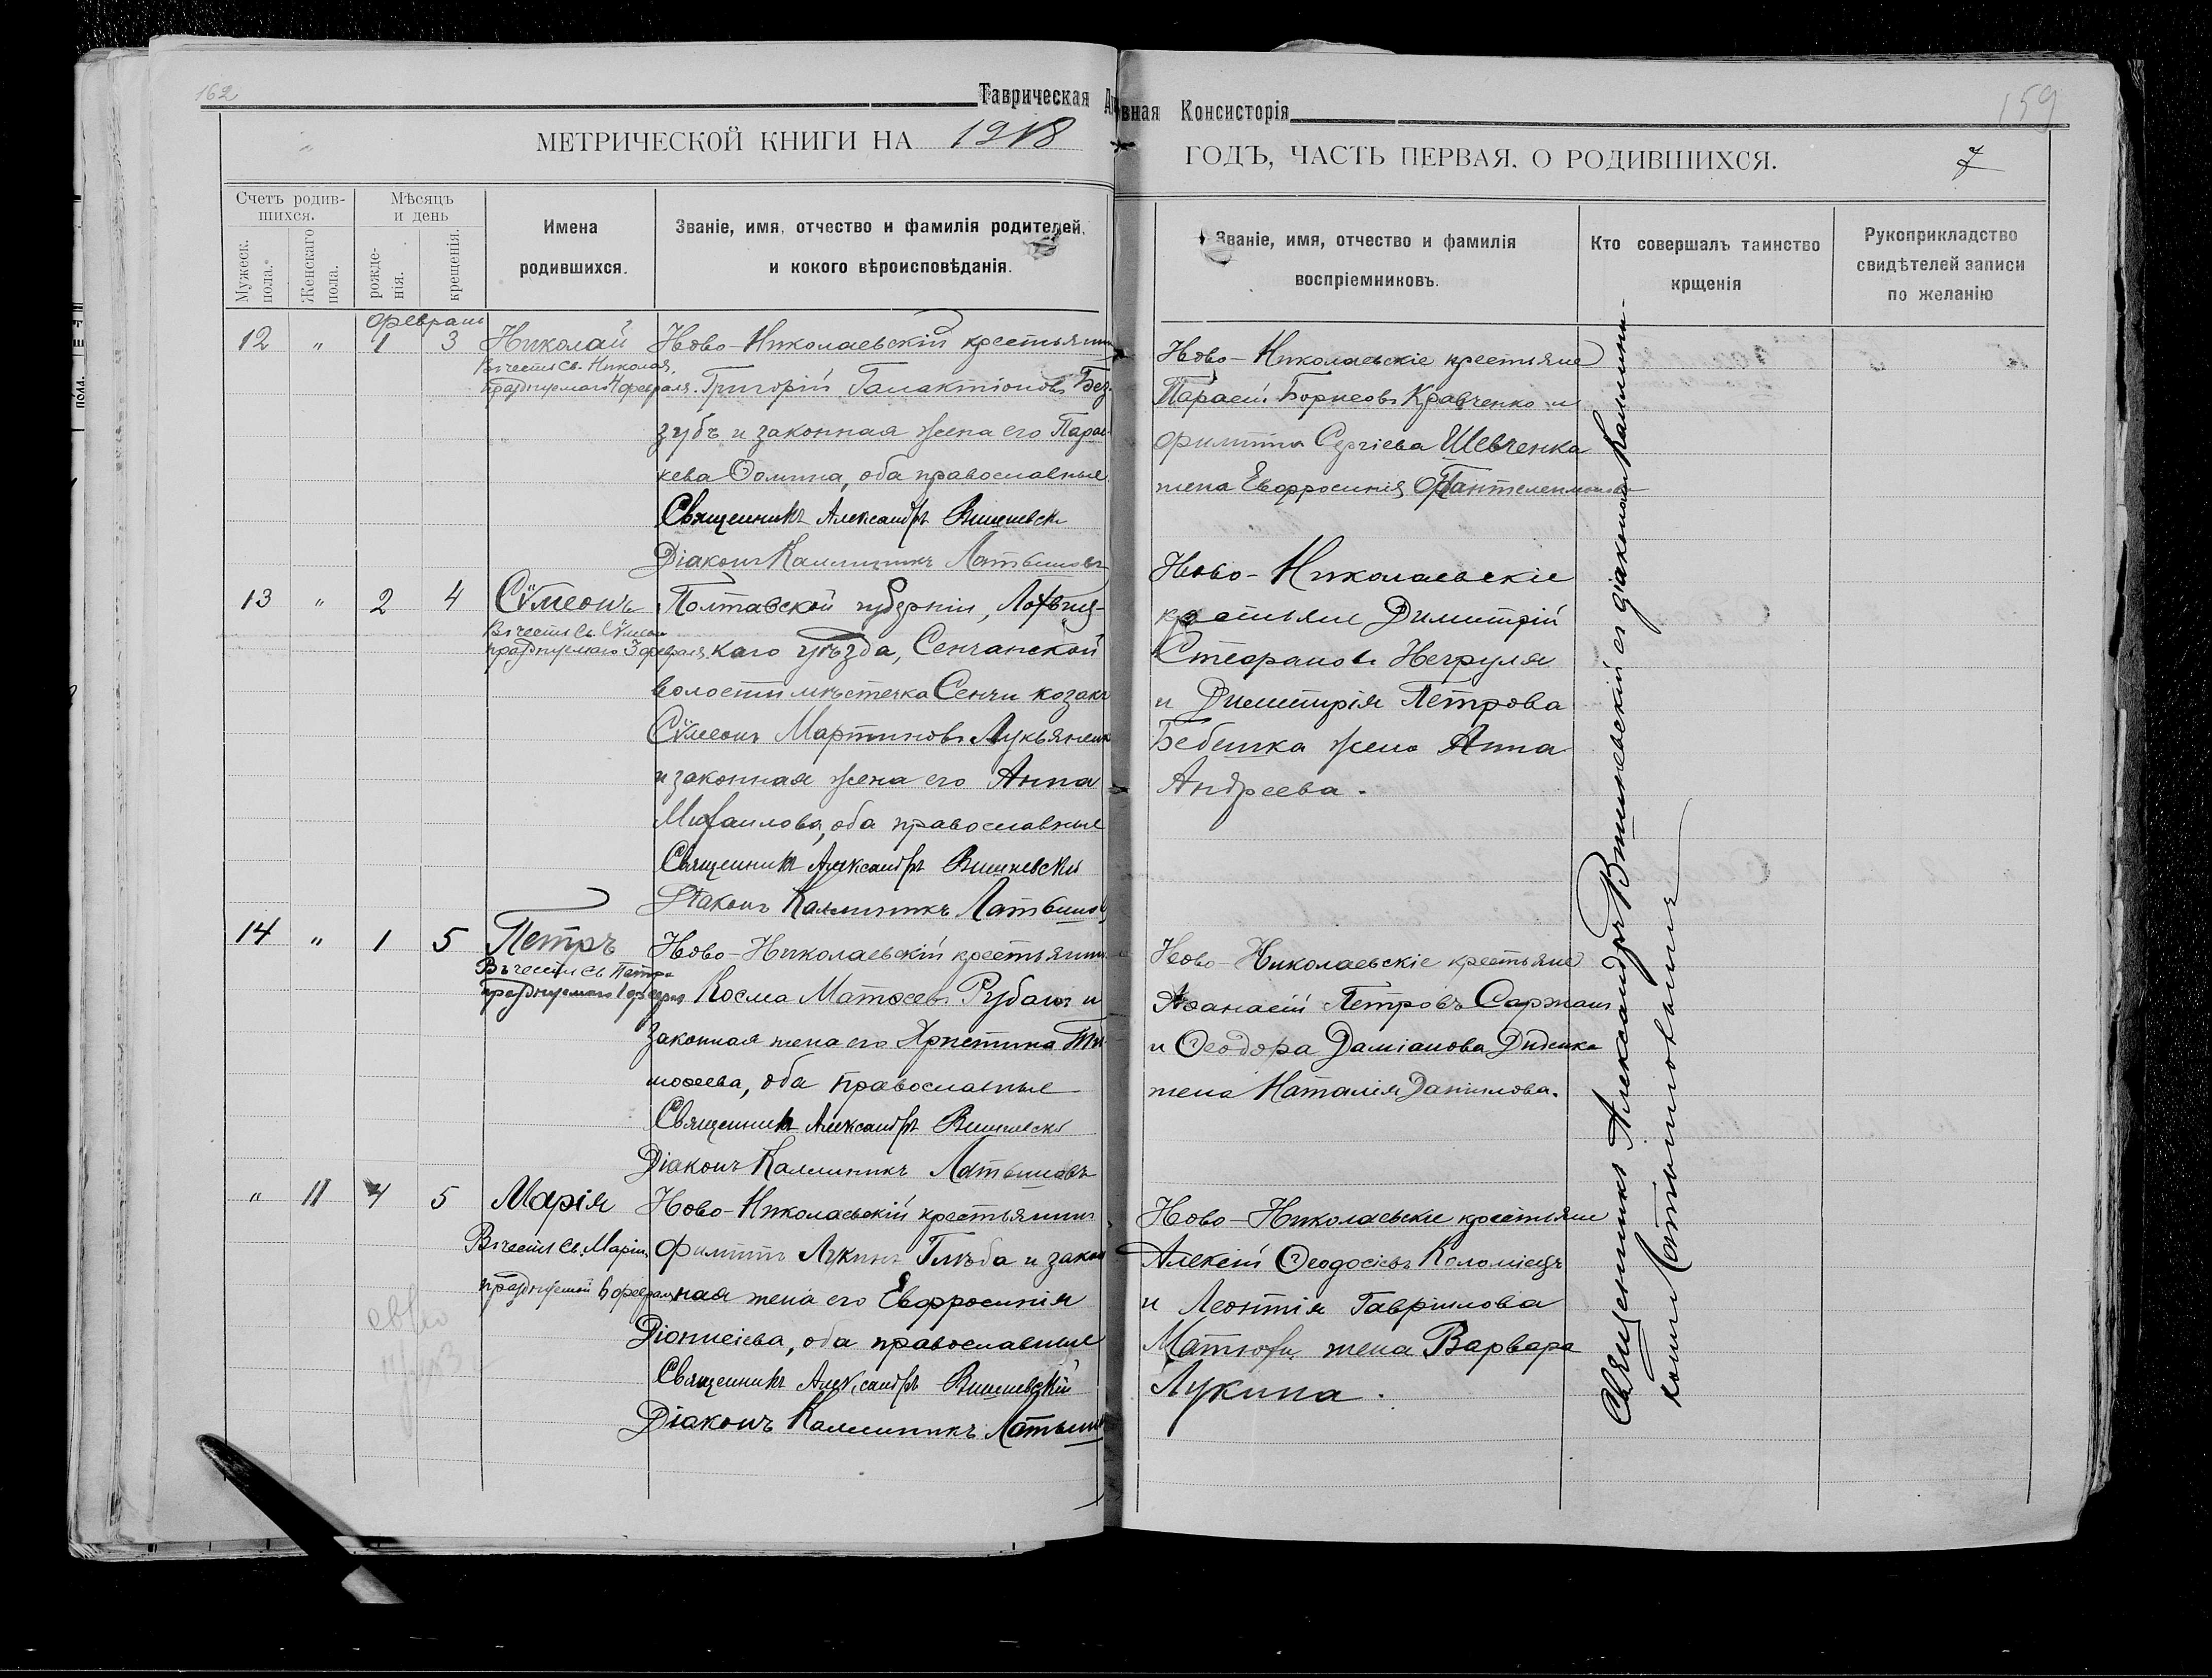 162
Таврическая
МЕТРИЧЕСКОЙ КНИГИ НА 1918
Счетъ родив-
шихся.
Мѣсяцъ
и день
Мужеск.
пола.
Женскаго
пола.
рожде-
нія.
крещенія.
Имена
родившихся.
Званіе, имя, отчество и фамилія родителей,
и кокого вѣроисповѣданія.
Февраль
12 " 1 3 Николай Ново-Николаевскій крестьянинъ
Въ честь св. Николая,
празднуемаго 4 февраля. Григорій Галактіоновъ Без-
зубъ и законная жена его Парас-
кева Ѳомина, оба православные
Священникъ Александръ Вишневскій
Діаконъ Каллиникъ
13 " 2 4 Сѵмеонъ Полтавской губерніи, Лохвиц-
Въ честь св. Сѵмеона
празднуемаго 3 февраля каго уѣзда, Сенчанской
волости мѣстечка Сенчи козакъ
Сѵмеонъ Мартиновъ Лукьяненко
и законная жена его Анна
Михаилова, оба православные
Священникъ Александръ Вишневскій
Діаконъ Каллиникъ
14 " 1 5 Петръ Ново-Николаевскій крестьянинъ
Въ честь св. Петра
празднуемаго 1 февраля Косма Матѳеевъ Рубанъ и
законная жена его Христина Ти-
моѳеева, оба православные
Священникъ Александръ Вишневскій
Діаконъ Каллиникъ
" 11 4 5 Марія Ново-Николаевскій крестьянинъ
Въ честь св. Маріи, Филиппъ Лукинъ Глѣба и закон
празднуемой 6 февраля ная жена его Евфросинія
Діонисіева, оба православные
Священникъ Александръ Вишневскій
Діаконъ Каллиникъ
вная Консисторія
159
ГОДЪ, ЧАСТЬ ПЕРВАЯ. О РОДИВШИХСЯ.
7
Званіе, имя, отчество и фамилія
воспріемниковъ.
Кто совершалъ таинство
крщенія
Рукоприкладство
свидѣтелей записи
по желанію
Ново-Николаевскіе крестьяне
Тарасій Борисовъ Кравченко и
Филиппа Сергіева Шевченка
жена Евфросинія Пантелеимонова
Ново-Николаевскіе
крестьяне Димитрій
Стефановъ Негруля
и Димитрія Петрова
Бебешка жена Анна
Андреева.
Ново-Николаевскіе крестьяне
Аѳанасій Петровъ Саржанъ
и Ѳеодора Даміанова Диденка
жена Наталія Данилова.
Ново-Николаевскіе крестьяне
Алексій Ѳеодосіевъ Коломіецъ
и Леонтія Гавріилова
жена Варвара
Лукина.
Священникъ Александръ Вишневскій съ діакономъ Каллини-
комъ